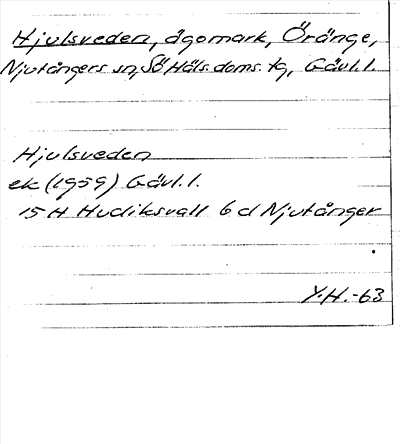 Hjulsveden, ägomark, Öränge,
Njutångers sn, Sö Häls. doms. tg, Gävl. l.
Hjulsveden
ek (1959) Gävl. l.
15 H Hudiksvall 6 d Njutånger
Y.H.-63